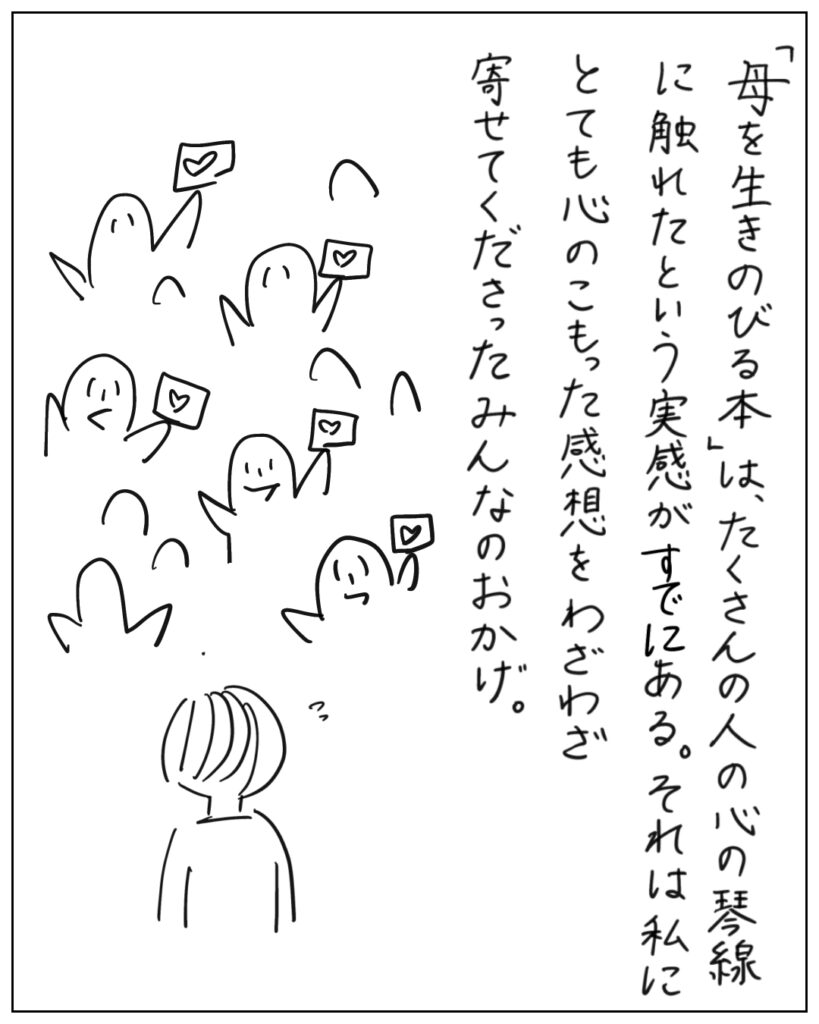 「母を生きのびる本」は、たくさんの人の心の琴線
に触れたという実感がすでにある。それは私に
とても心のこもった感想をわざわざ
寄せてくださったみんなのおかげ。